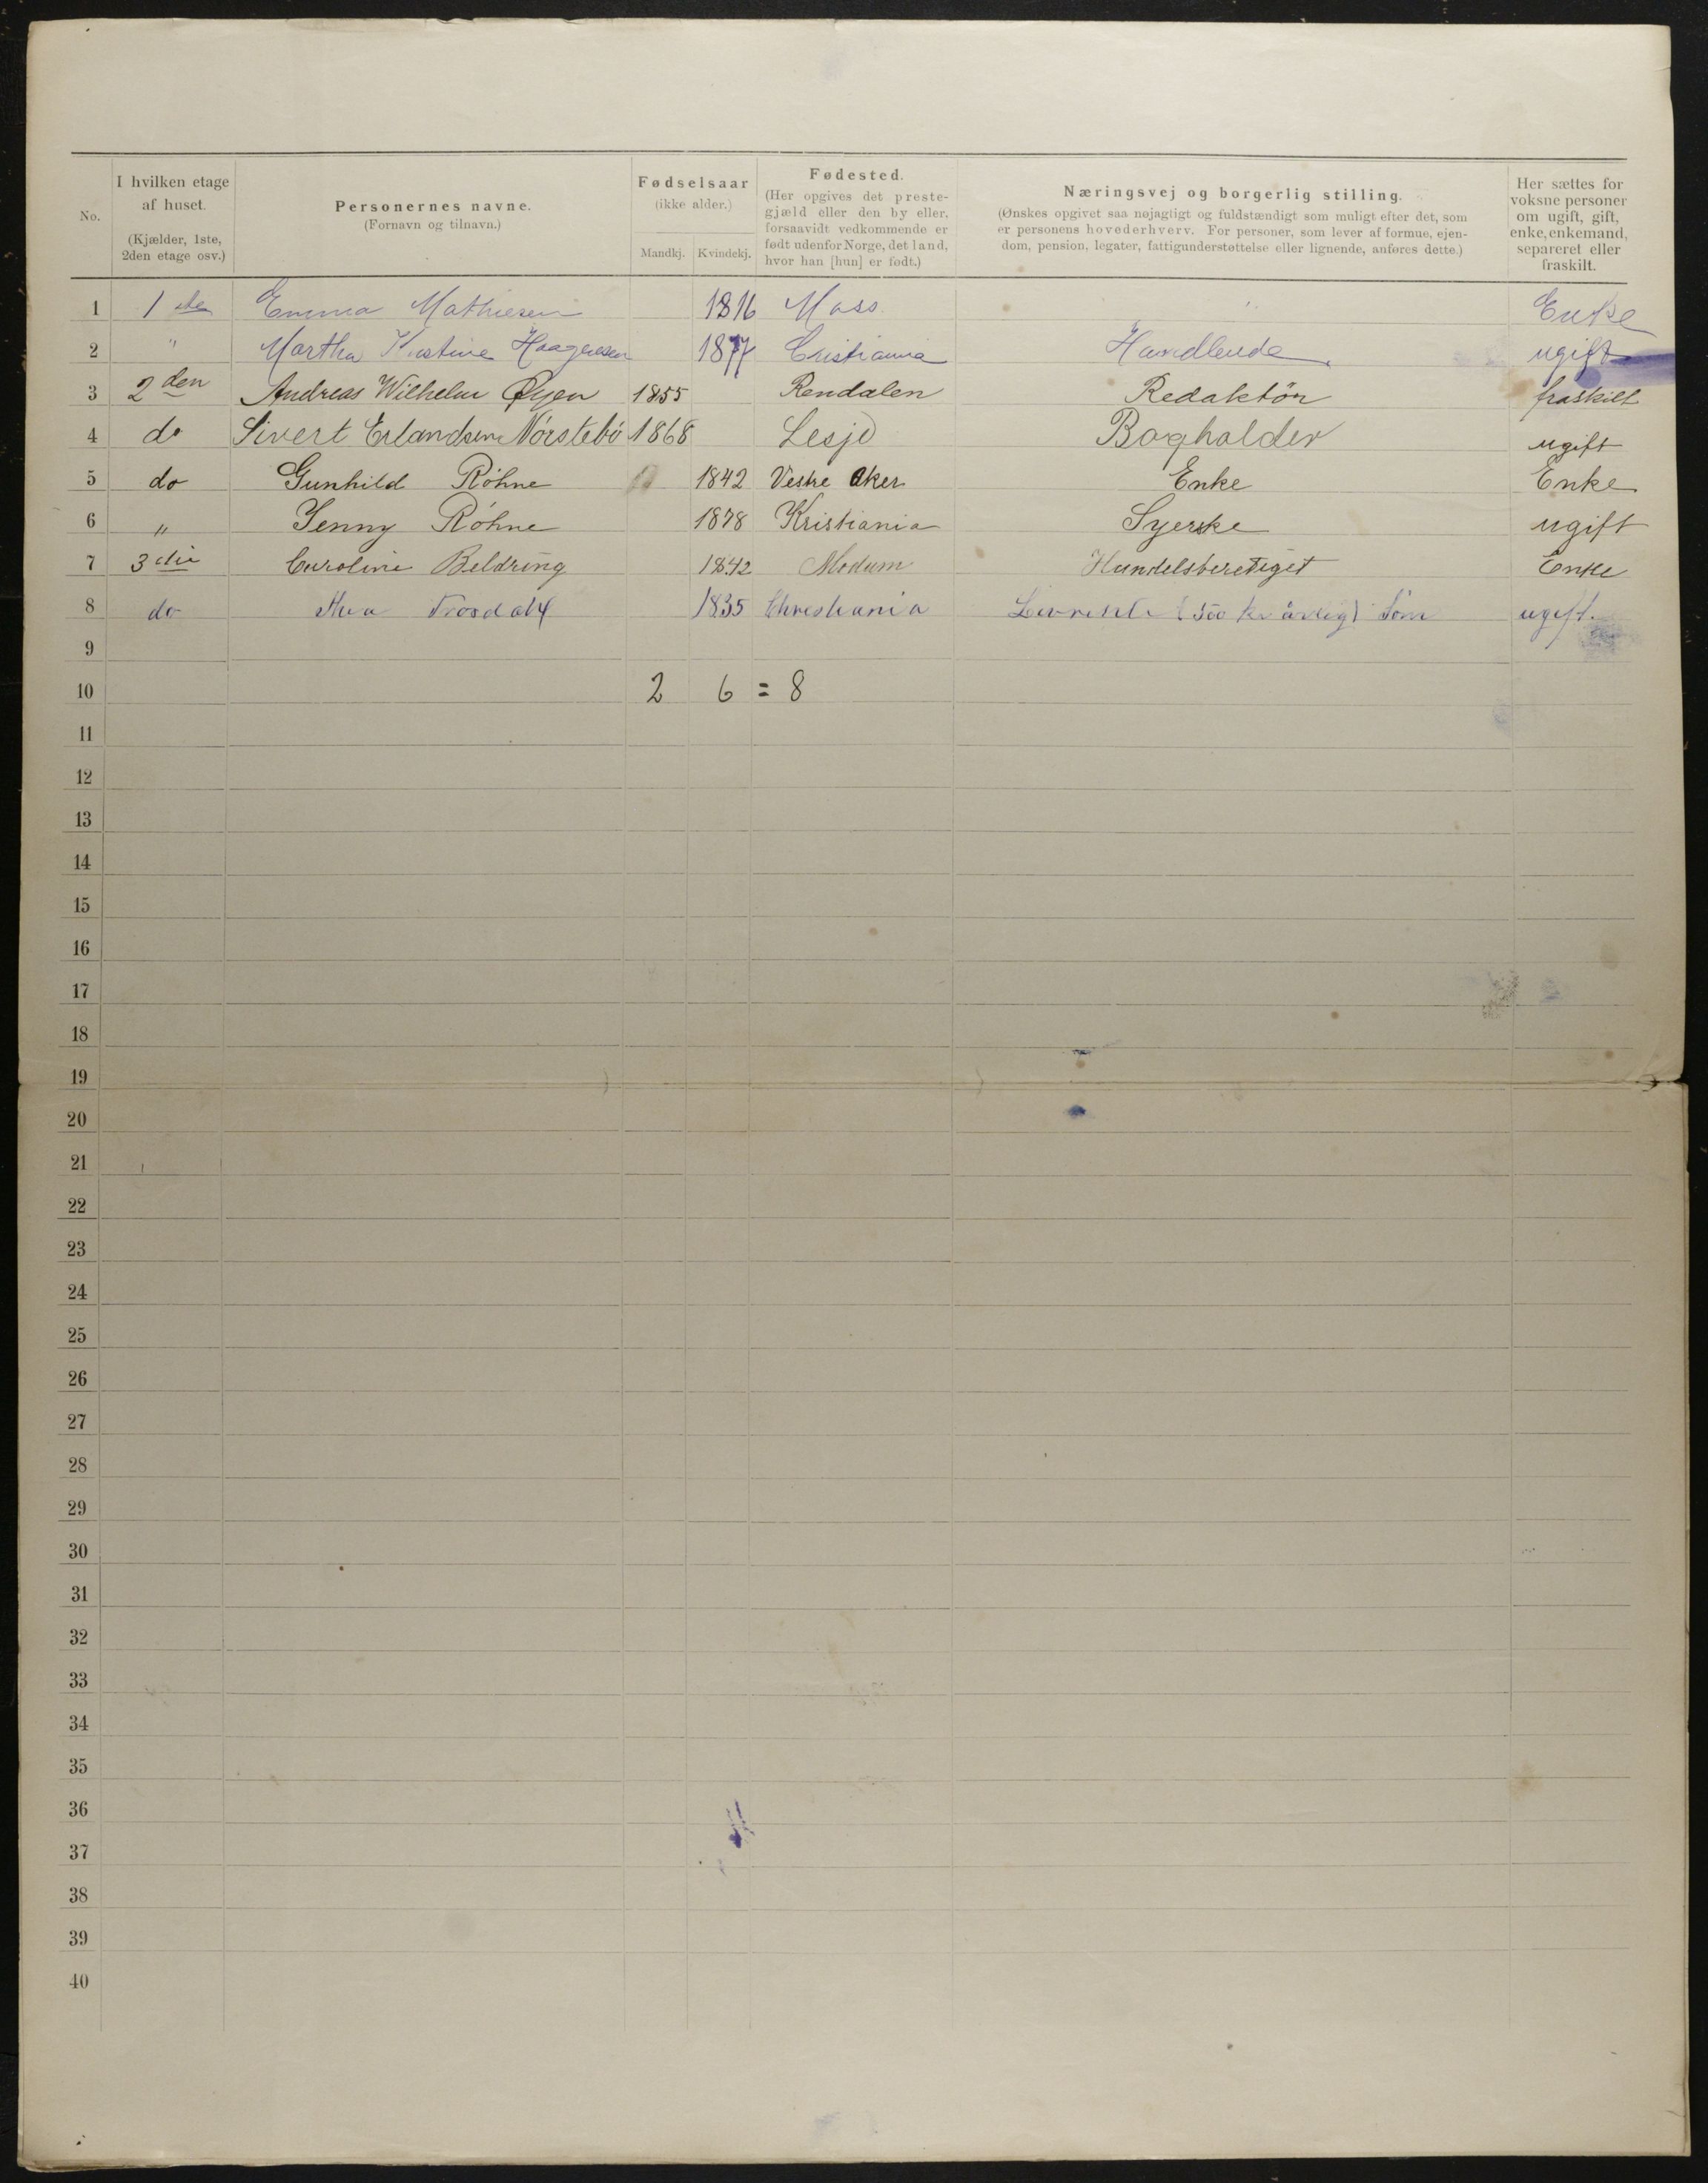 No.
I hvilken etage
af huset.
(Kjælder, 1ste,
2den etage osv.)
Personernes navne.
(Fornavn og tilnavn.)
Fødselsaar
(ikke alder.)
Mandkj. Kvindekj.
Fødested.
(Her opgives det preste-
gjæld eller den by eller,
forsaavidt vedkommende er
født udenfor Norge, det land,
hvor han [hun] er født.)
Næringsvej og borgerlig stilling.
(Ønskes opgivet saa nøjagtigt og fuldstændigt som muligt efter det, som
er personens hovederhverv. For personer, som lever af formue, ejen-
dom, pension, legater, fattigunderstøttelse eller lignende, anføres dette.)
Her sættes for
voksne personer
om ugift, gift,
enke, enkemand,
separeret eller
fraskilt.
1 1ste Emma Mathiesen 1816 Moss Enke
2 " Martha Kristine Haagensen 1877 Cristiania Handlende ugift
3 2den Andreas Wilhelm Øyen 1855 Rendalen Redaktör fraskilt
4 do Sivert Erlandsen Nörstebö 1868 Lesje Bogholder ugift
5 do Gunhild Röhne 1842 Vestre Aker Enke Enke
6 " Jenny Röhne 1878 Kristiania Syerske ugift
7 3die Caroline Beldring 1842 Modum Handelsberetiget Enke
8 do 1835 Christiania Livrente (300 kr årlig) ugift.
9
10 2 6 = 8
11
12
13
14
15
16
17
18
19
20
21
22
23
24
25
26
27
28
29
30
31
32
33
34
35
36
37
38
39
40